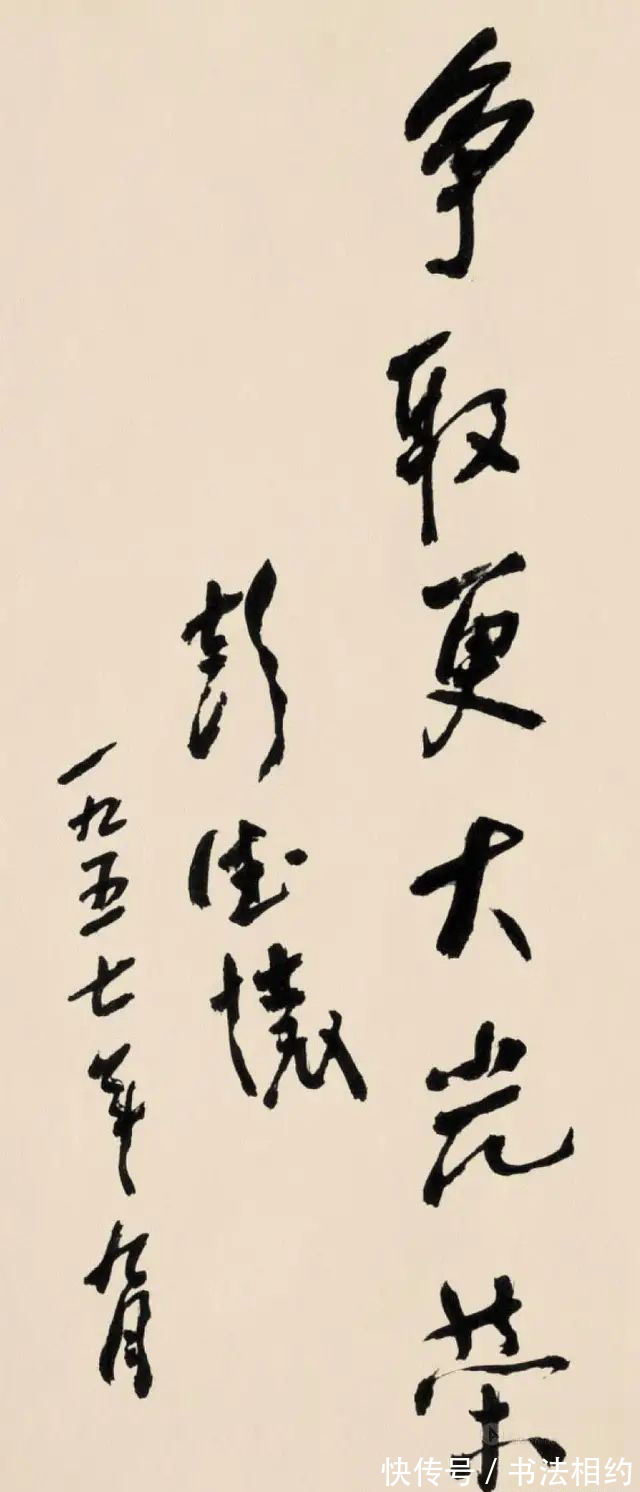 争取更大光荣
彭德怀
一九五七年九月
快传号/书法相约